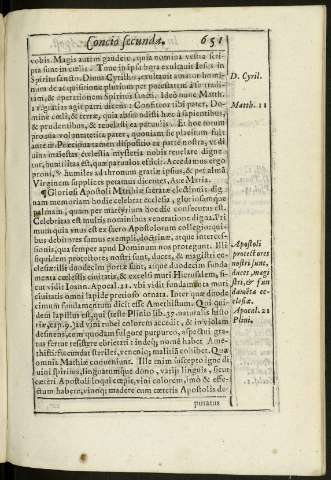 Concio secunda. 651
vobis. Magis autem gaudete, quia nomina vestra scri-
pta sunt in cœlis. Tunc in ipsa hora exultauit Iesus in
Spiritu sancto. Diuus Cyrillus, exultauit amator homi-
num de acquisitione plurium per potestatem à se tradi-
tam, & operationem Spiritus sancti. Ideò nunc Matth.
11. gratias agit patri dicens: Confiteor tibi pater, Do-
mine cœli, & terræ, quia abscondisti hæc à sapientibus,
& prudentibus, & reuelasti ea paruulis. Et hoc totum
prouenit
ante te. Præcipua tamen dispositio ex parte nostra, vt di-
uina maiestas cœlestia mysteria nobis reuelare digne-
tur, humilitas est, quæ paruulos efficit. Accedamus ergo
proni, & humiles ad thronum gratiæ ipsius, & per almā
Virginem supplices petamus dicentes, Aue Maria.
¶Gloriosi Apostoli Mathiæ sacratæ electionis dig
nam memoriam hodie celebrat ecclesia, gloriosamque
palmam, quam per martyrium hoc die consecutus est.
Celebritas est multis nominibus veneratione digna. Pri
mum quia vnus est ex sacro Apostolorum collegio: qui-
bus debitores sumus exempli, doctrinæ, atque interces-
sionis, qua semper apud Dominum nos protegunt. Illi
siquidem protectores nostri sunt, duces, & magistri ec-
clesiæ: illi duodecim portæ sunt, atque duodecim funda
menta cœlestis ciuitatis, & excelsi muri Hierusalem, si-
cut vidit Ioann. Apocal. 21. vbi vidit fundamenta muri
ciuitatis omni lapide pretioso ornata. Inter quæ duode
cimum fundamentum dicit esse Amethistum. Qui qui-
dem lapillus est, qui (teste Plinio lib. 37. naturalis histo
riæ, cap. 9.) ad vini rubei colorem accedit, & in violam
desinens, cum quodam fulgore purpureo, aspectui gra-
tus fertur resistere ebrietati: indeq; nomē habet Ame-
thisti:
omnia Mathiæ conueniunt. Ille enim suscepto igne di
uini spiritus, linguarumque dono, varijs linguis, sicut
cæteri Apostoli loqui cœpit, vini colorem, imò & effe-
ctum habere, vinoq; madere cum cæteris Apostolis de-
putatus
D. Cyril.
Matth. 11
Apostoli
protectores
nostri sunt,
duces, magi
stri, & fun
damēta ec-
clesiæ.
Apocal. 21
Plini.